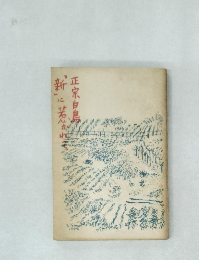 正宗白鳥
「新」に惹かれて